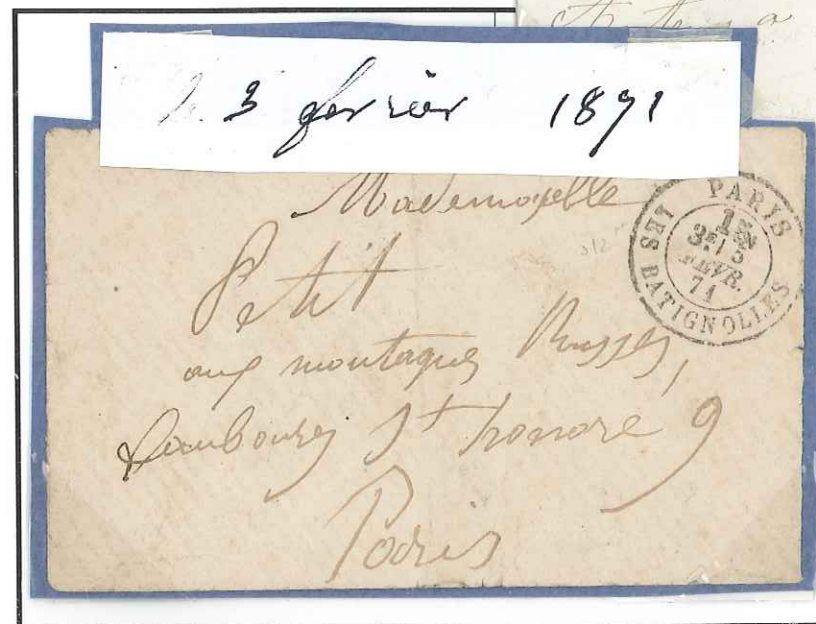 3 février 1871
Mademoiselle
Petit
aux montagnes Russes,
faubourg St honoré 9
Paris
PARIS
LES BATIGNOLLES
3
FEVR.
71